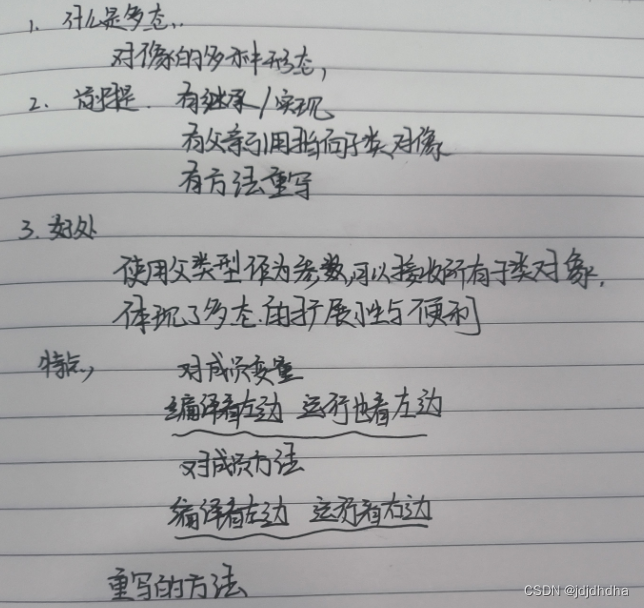 1. 什么是多态..
对像的多种形态,
2. 前提. 有继承/实现
有父亲引用指向子类对像
有方法重写
3. 好处
使用父类型作为参数,可以接收所有子类对象.
体现了多态.的扩展性与便利
特点, 对成员变量
编译看左边 运行也看左边
对成员方法
编译看左边 运行看右边
重写的方法
CSDN @jdjdhdha